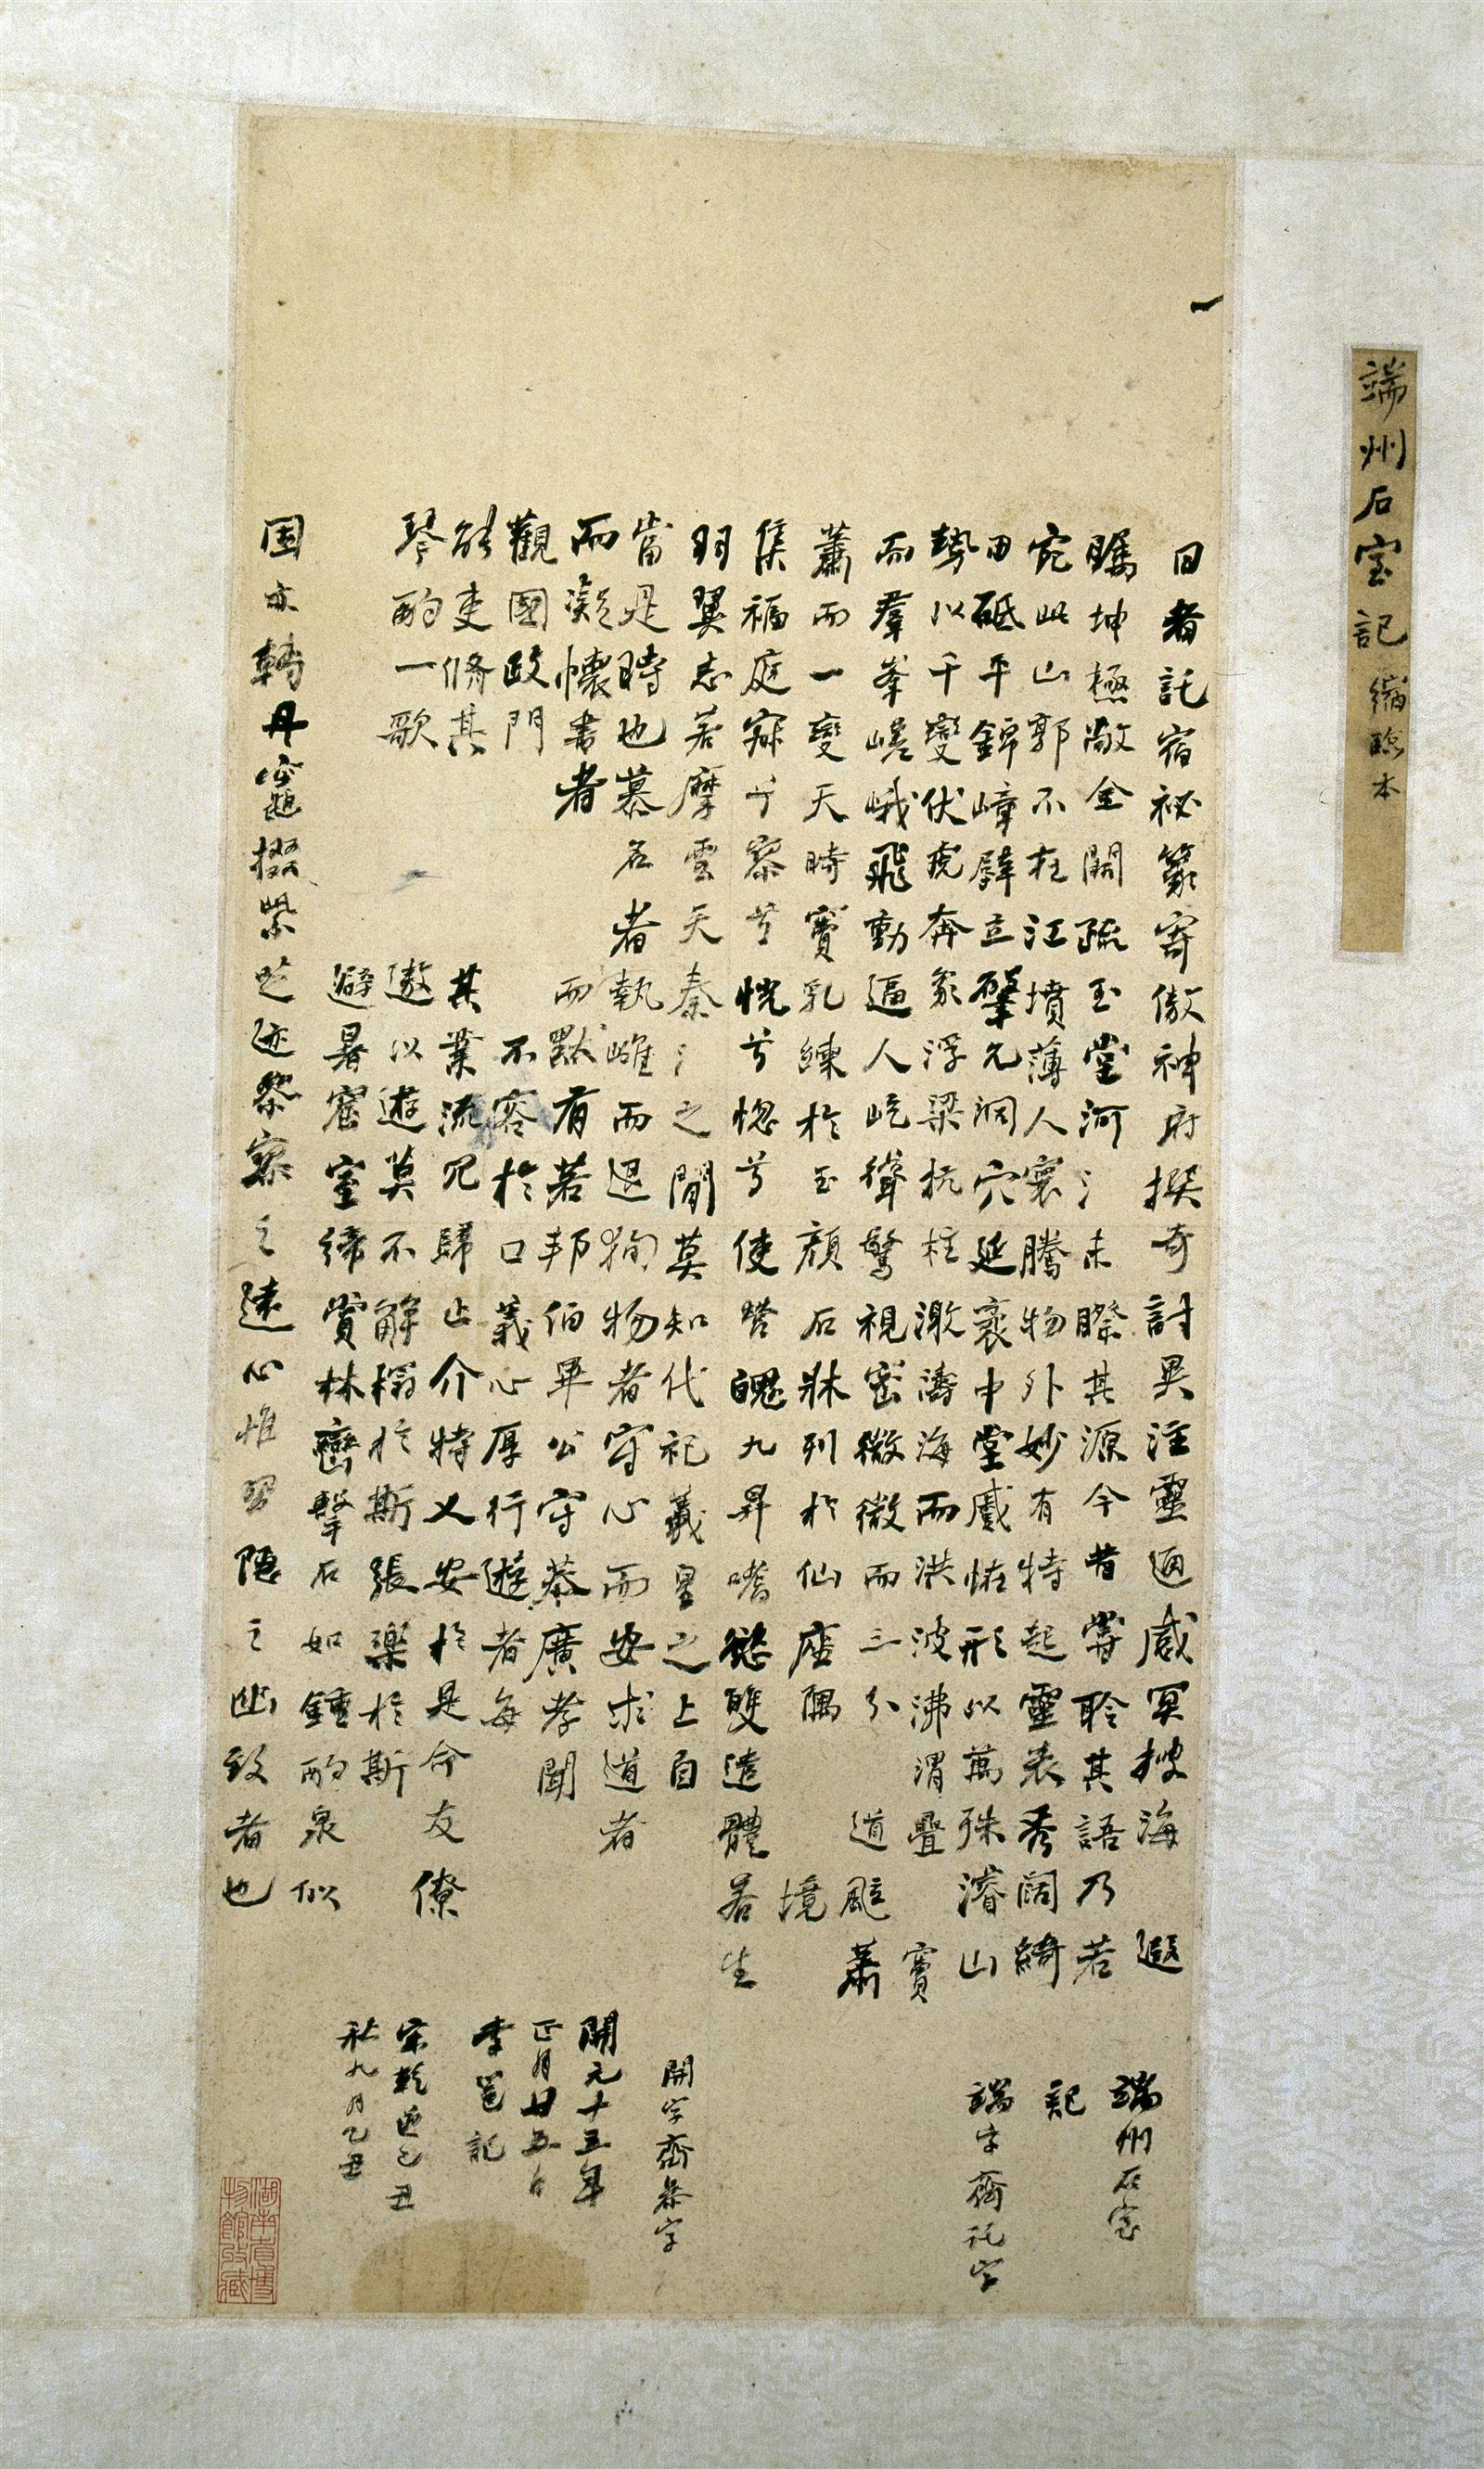 端州石室記縮臨本
一
日者託宿祕籙寄傲神府撰奇討異注靈通感冥捜海遐
矚坤極敞金闕疏玉堂河氵未睽其源今昔嘗聆其語乃若
宛此山郭不枉江墳薄人寰騰物外妙有特起靈表秀闊綺
田砥平錦嶂壁立肇允洞穴延袤中堂厲怪形以萬殊濬山
勢以千變伏虎奔象浮梁抗柱激濤海而洪波沸渭疊寶
而羣峯嵯峨飛動逼人屹聳驚視密微微而三分道颰蕭
蕭而一變天時竇乳練於玉顏石牀列於仙座隅境
集福庭寂乎寥兮恍兮惚兮使營魄九昇嗜慾雙遣體若生
羽翼志若摩雲天秦氵之間莫知代祀羲皇之上自
當是時也慕名者執雌而退徇物者守心而安求道者
而凝懷書者而默有若邦伯畢公守恭廣孝聞
觀國政門不容於口義心厚行遊者每
能吏脩其其業流冗歸止介特乂安於是命友僚
琴酌一歌遨以遊莫不解榻於斯張樂於斯
避暑窟室締賞林巒擊石如鍾酌泉似
固亦轉丹竈掇紫芝迹祭寥之遠心惟習隱之幽致者也
端州石室
記
端字齋託字
開字齋恭字
開元十五年
正月廿五日
李邕記
宋乾道己丑
秋九月乙丑
湖南省博
物館收藏